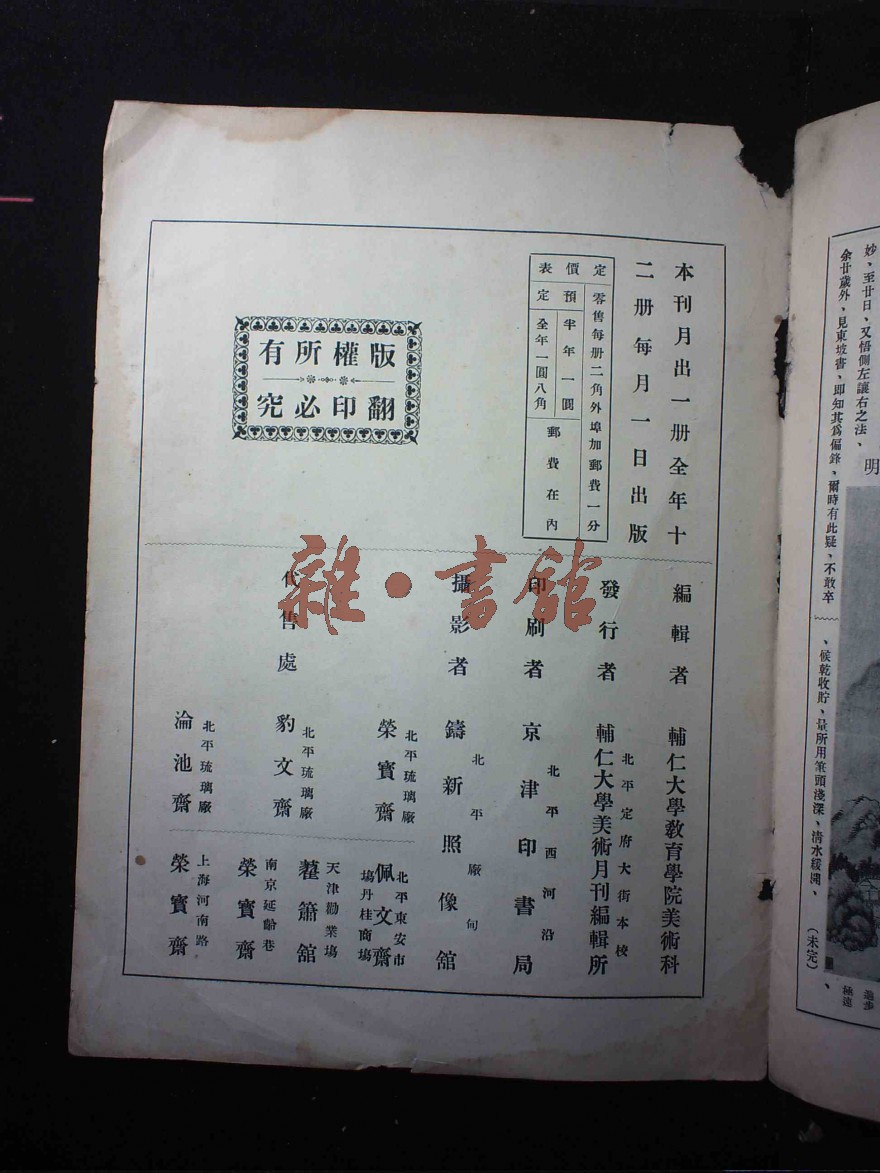 本刊月出一册全年十
二册每月一日出版
定價表
零售每册二角外埠加郵費一分
預定
半年一圓
全年一圓八角
郵費在內
版權所有
翻印必究
編輯者
輔仁大學教育學院美術科
發行者
北平定府大街本校
輔仁大學美術月刊編輯所
印刷者
北平西河沿
京津印書局
攝影者
北平廠甸
鑄新照像舘
代售處
北平琉璃廠
榮寶齋
北平琉璃廠
豹文齋
北平琉璃廠
淪池齋
北平東安市
塲丹桂商塲
佩文齋
天津勸業塲
蘿簫舘
南京延齡巷
榮寶齋
上海河南路
榮寶齋
雜·書舘
妙、至廿日、又悟側左讓右之法、
余廿歲外、見東坡書、即知其爲偏鋒、爾時有此疑、不敢卒
、候乾收貯、量所用筆頭淺深、清水緩開、
(未完)
明